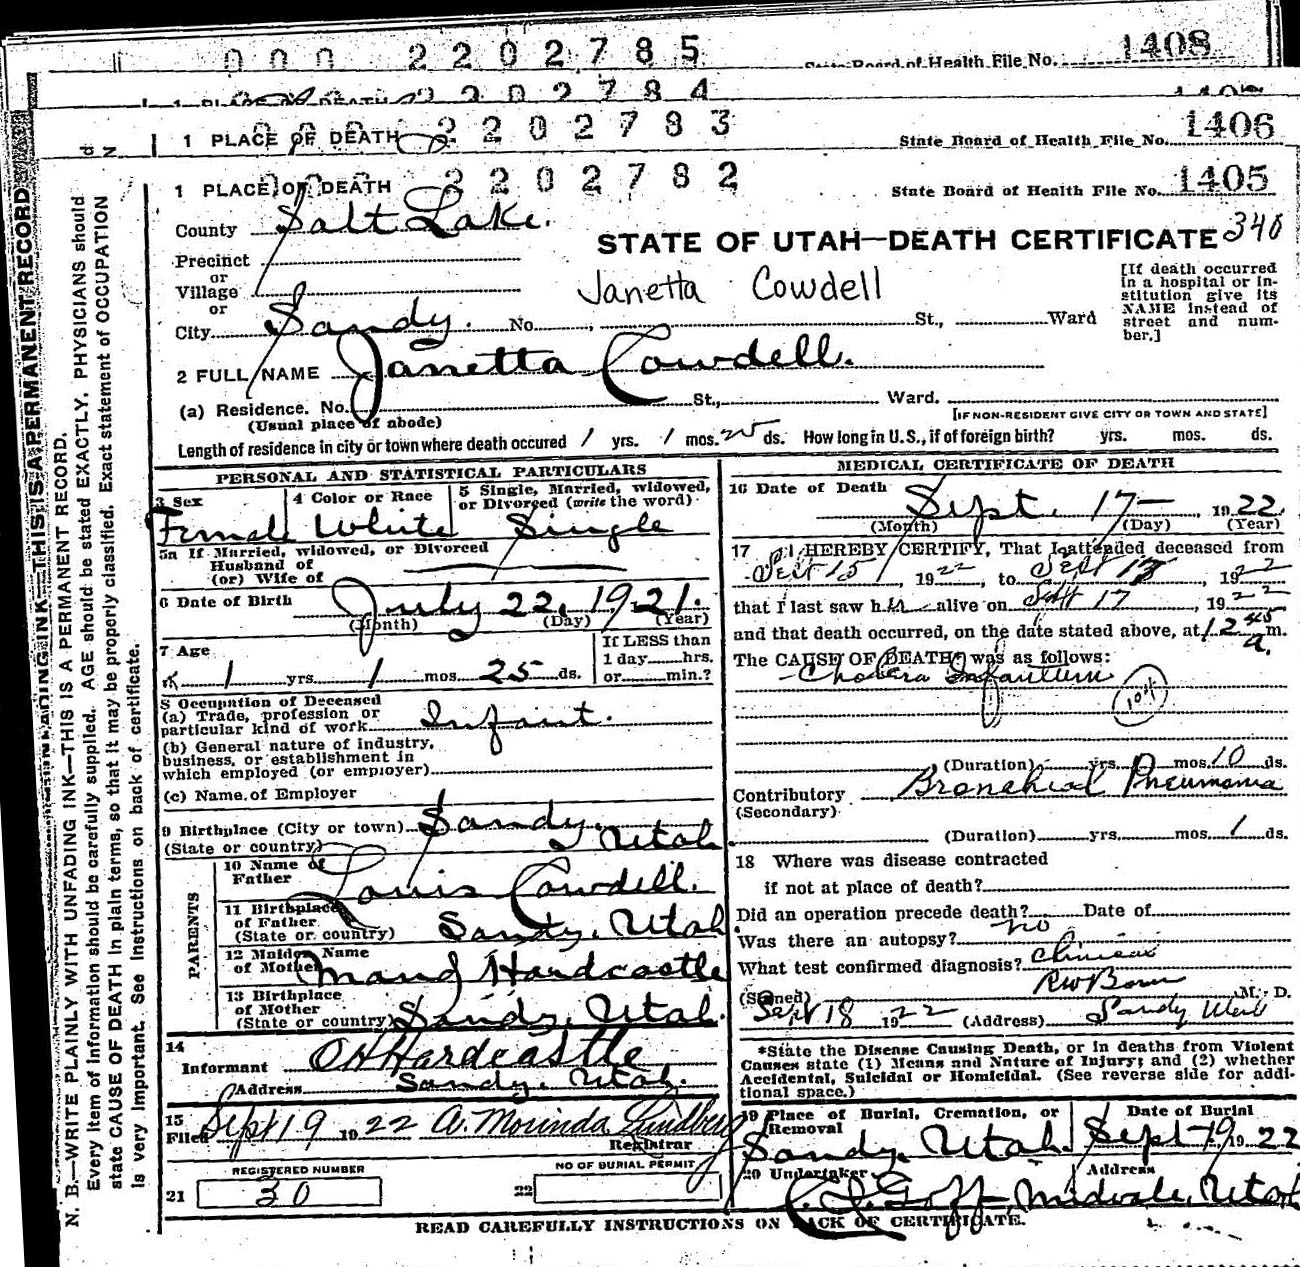 000 2202785
State Board of Health File No. 1408
1 PLACE OF DEATH 2202784
1 PLACE OF DEATH 2202783
State Board of Health File No. 1406
1 PLACE OF DEATH 2202782
State Board of Health File No. 1405
County Salt Lake.
STATE OF UTAH—DEATH CERTIFICATE 340
Precinct
or
Village
or
Janetta Cowdell
[If death occurred
in a hospital or in-
stitution give its
NAME instead of
street and num-
ber.]
City Sandy. No. , St., Ward
2 FULL NAME Janetta Cowdell.
(a) Residence. No. St., Ward.
(Usual place of abode)
[IF NON-RESIDENT GIVE CITY OR TOWN AND STATE]
Length of residence in city or town where death occured 1 yrs. 1 mos. 25 ds. How long in U.S., if of foreign birth? yrs. mos. ds.
PERSONAL AND STATISTICAL PARTICULARS
3 Sex
Female
4 Color or Race
White
5 Single, Married, widowed,
or Divorced (write the word)
Single
5a If Married, widowed, or Divorced
Husband of
(or) Wife of
6 Date of Birth July 22, 1921.
(Month) (Day) (Year)
7 Age
1 yrs. 1 mos. 25 ds.
If LESS than
1 day hrs.
or min.?
8 Occupation of Deceased
(a) Trade, profession or
particular kind of work Infant.
(b) General nature of industry,
business, or establishment in
which employed (or employer)
(c) Name of Employer
9 Birthplace (City or town) Sandy.
(State or country) Utah
PARENTS
10 Name of
Father Louis Cowdell.
11 Birthplace
of Father
(State or country) Sandy, Utah
12 Maiden Name
of Mother Maud Hardcastle
13 Birthplace
of Mother
(State or country) Sandy, Utah.
14
Informant O H Hardcastle
Address Sandy, Utah.
15
Filed Sept 19 1922 A. Morinda Lundberg
Registrar
REGISTERED NUMBER
21 30
NO OF BURIAL PERMIT
22
MEDICAL CERTIFICATE OF DEATH
16 Date of Death Sept. 17— , 1922.
(Month) (Day) (Year)
17 I HEREBY CERTIFY, That I attended deceased from
Sept 15 , 1922 , to Sept 17 , 1922
that I last saw her alive on Sept 17 , 1922
and that death occurred, on the date stated above, at 12 45 a. m.
The CAUSE OF DEATH* was as follows:
Cholera Infantum
104
(Duration) yrs. mos. 10 ds.
Contributory Bronchial Pneumonia
(Secondary)
(Duration) yrs. mos. 1 ds.
18 Where was disease contracted
if not at place of death?
Did an operation precede death? Date of
Was there an autopsy? no
What test confirmed diagnosis? Clinical
(Signed) M. D.
Sept 18 1922 (Address) Sandy Utah
*State the Disease Causing Death, or in deaths from Violent
Causes state (1) Means and Nature of Injury; and (2) whether
Accidental, Suicidal or Homicidal. (See reverse side for addi-
tional space.)
19 Place of Burial, Cremation, or
Removal
Sandy, Utah.
Date of Burial
Sept-19 1922
20 Undertaker Address
Goff, Midvale, Utah
READ CAREFULLY INSTRUCTIONS ON BACK OF CERTIFICATE.
N. B.—WRITE PLAINLY WITH UNFADING INK—THIS IS A PERMANENT RECORD.
Every item of information should be carefully supplied. AGE should be stated EXACTLY. PHYSICIANS should
state CAUSE OF DEATH in plain terms, so that it may be properly classified. Exact statement of OCCUPATION
is very important. See Instructions on back of certificate.
UNFADING INK—THIS IS A PERMANENT RECORD